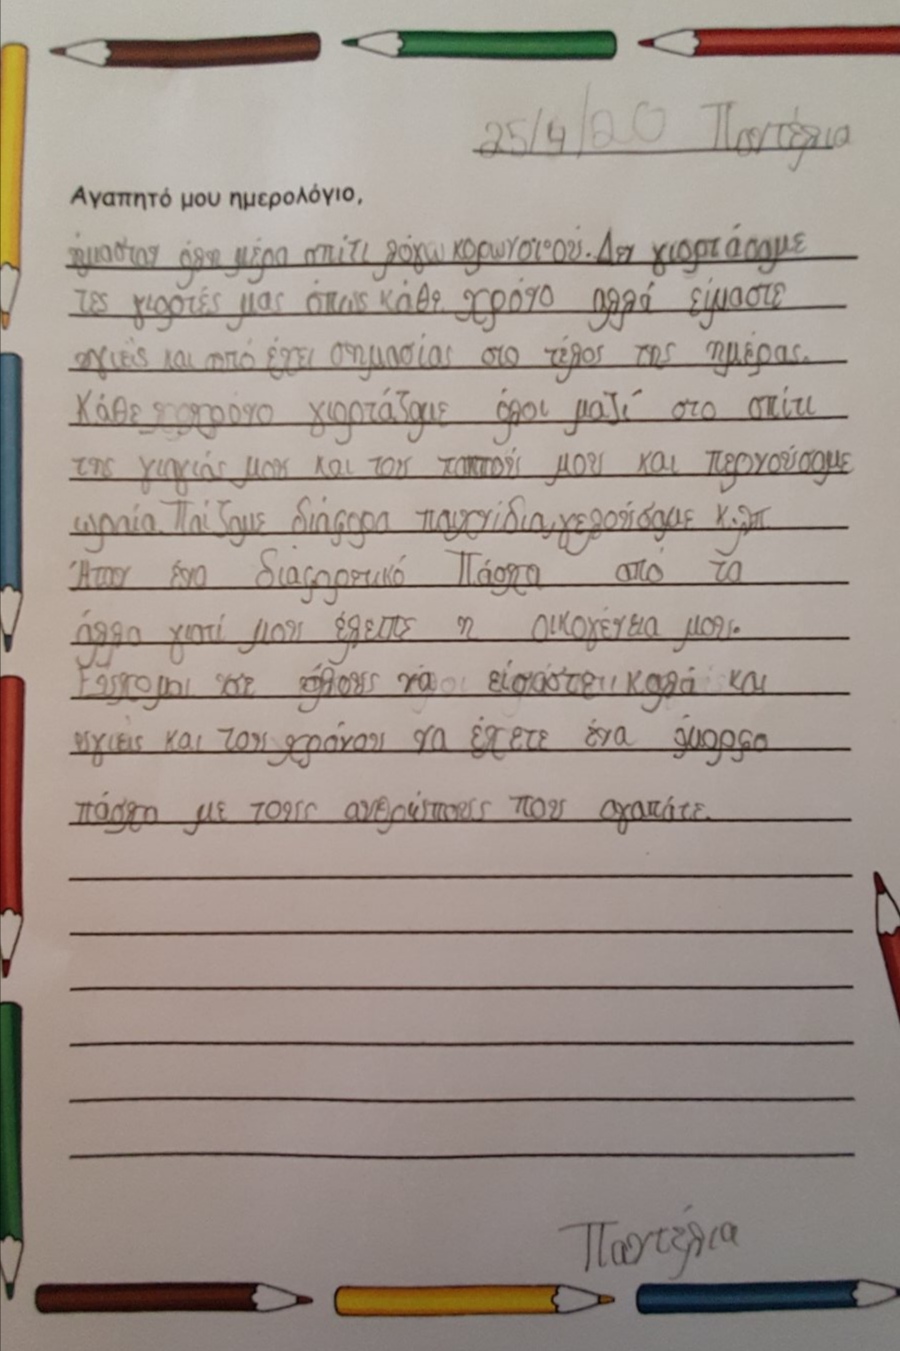 25/4/20 Παντέλια
Αγαπητό μου ημερολόγιο,
ήμασταν όλη μέρα σπίτι λόγω κορωνοϊού. Δεν γιορτάσαμε
τες γιορτές μας όπως κάθε χρόνο αλλά είμαστε
υγιείς και αυτό έχει σημασίας στο τέλος της ημέρας.
Κάθε χρόνο γιορτάζαμε όλοι μαζί στο σπίτι
της γιαγιάς μου και του παππού μου και περνούσαμε
ωραία. Παίζαμε διάφορα παιχνίδια, γελούσαμε κ.λπ.
Ήταν ένα διαφορετικό Πάσχα από τα
άλλα γιατί μου έλειπε η οικογένεια μου.
Εύχομαι σε όλους να είσαστε καλά και
υγιείς και του χρόνου να έχετε ένα όμορφο
πάσχα με τους ανθρώπους που αγαπάτε.
Παντέλια